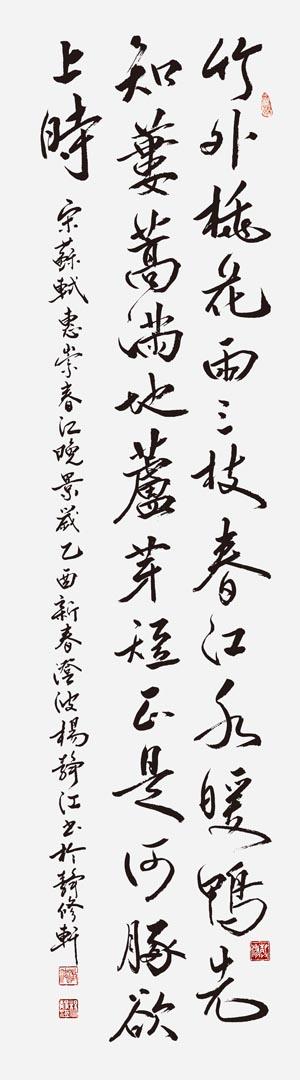 竹外桃花兩三枝春江水暖鴨先
知蔞蒿滿地蘆芽短正是河豚欲
上時
宋蘇軾惠崇春江晚景歲乙酉新春澄波楊靜江書於靜修軒